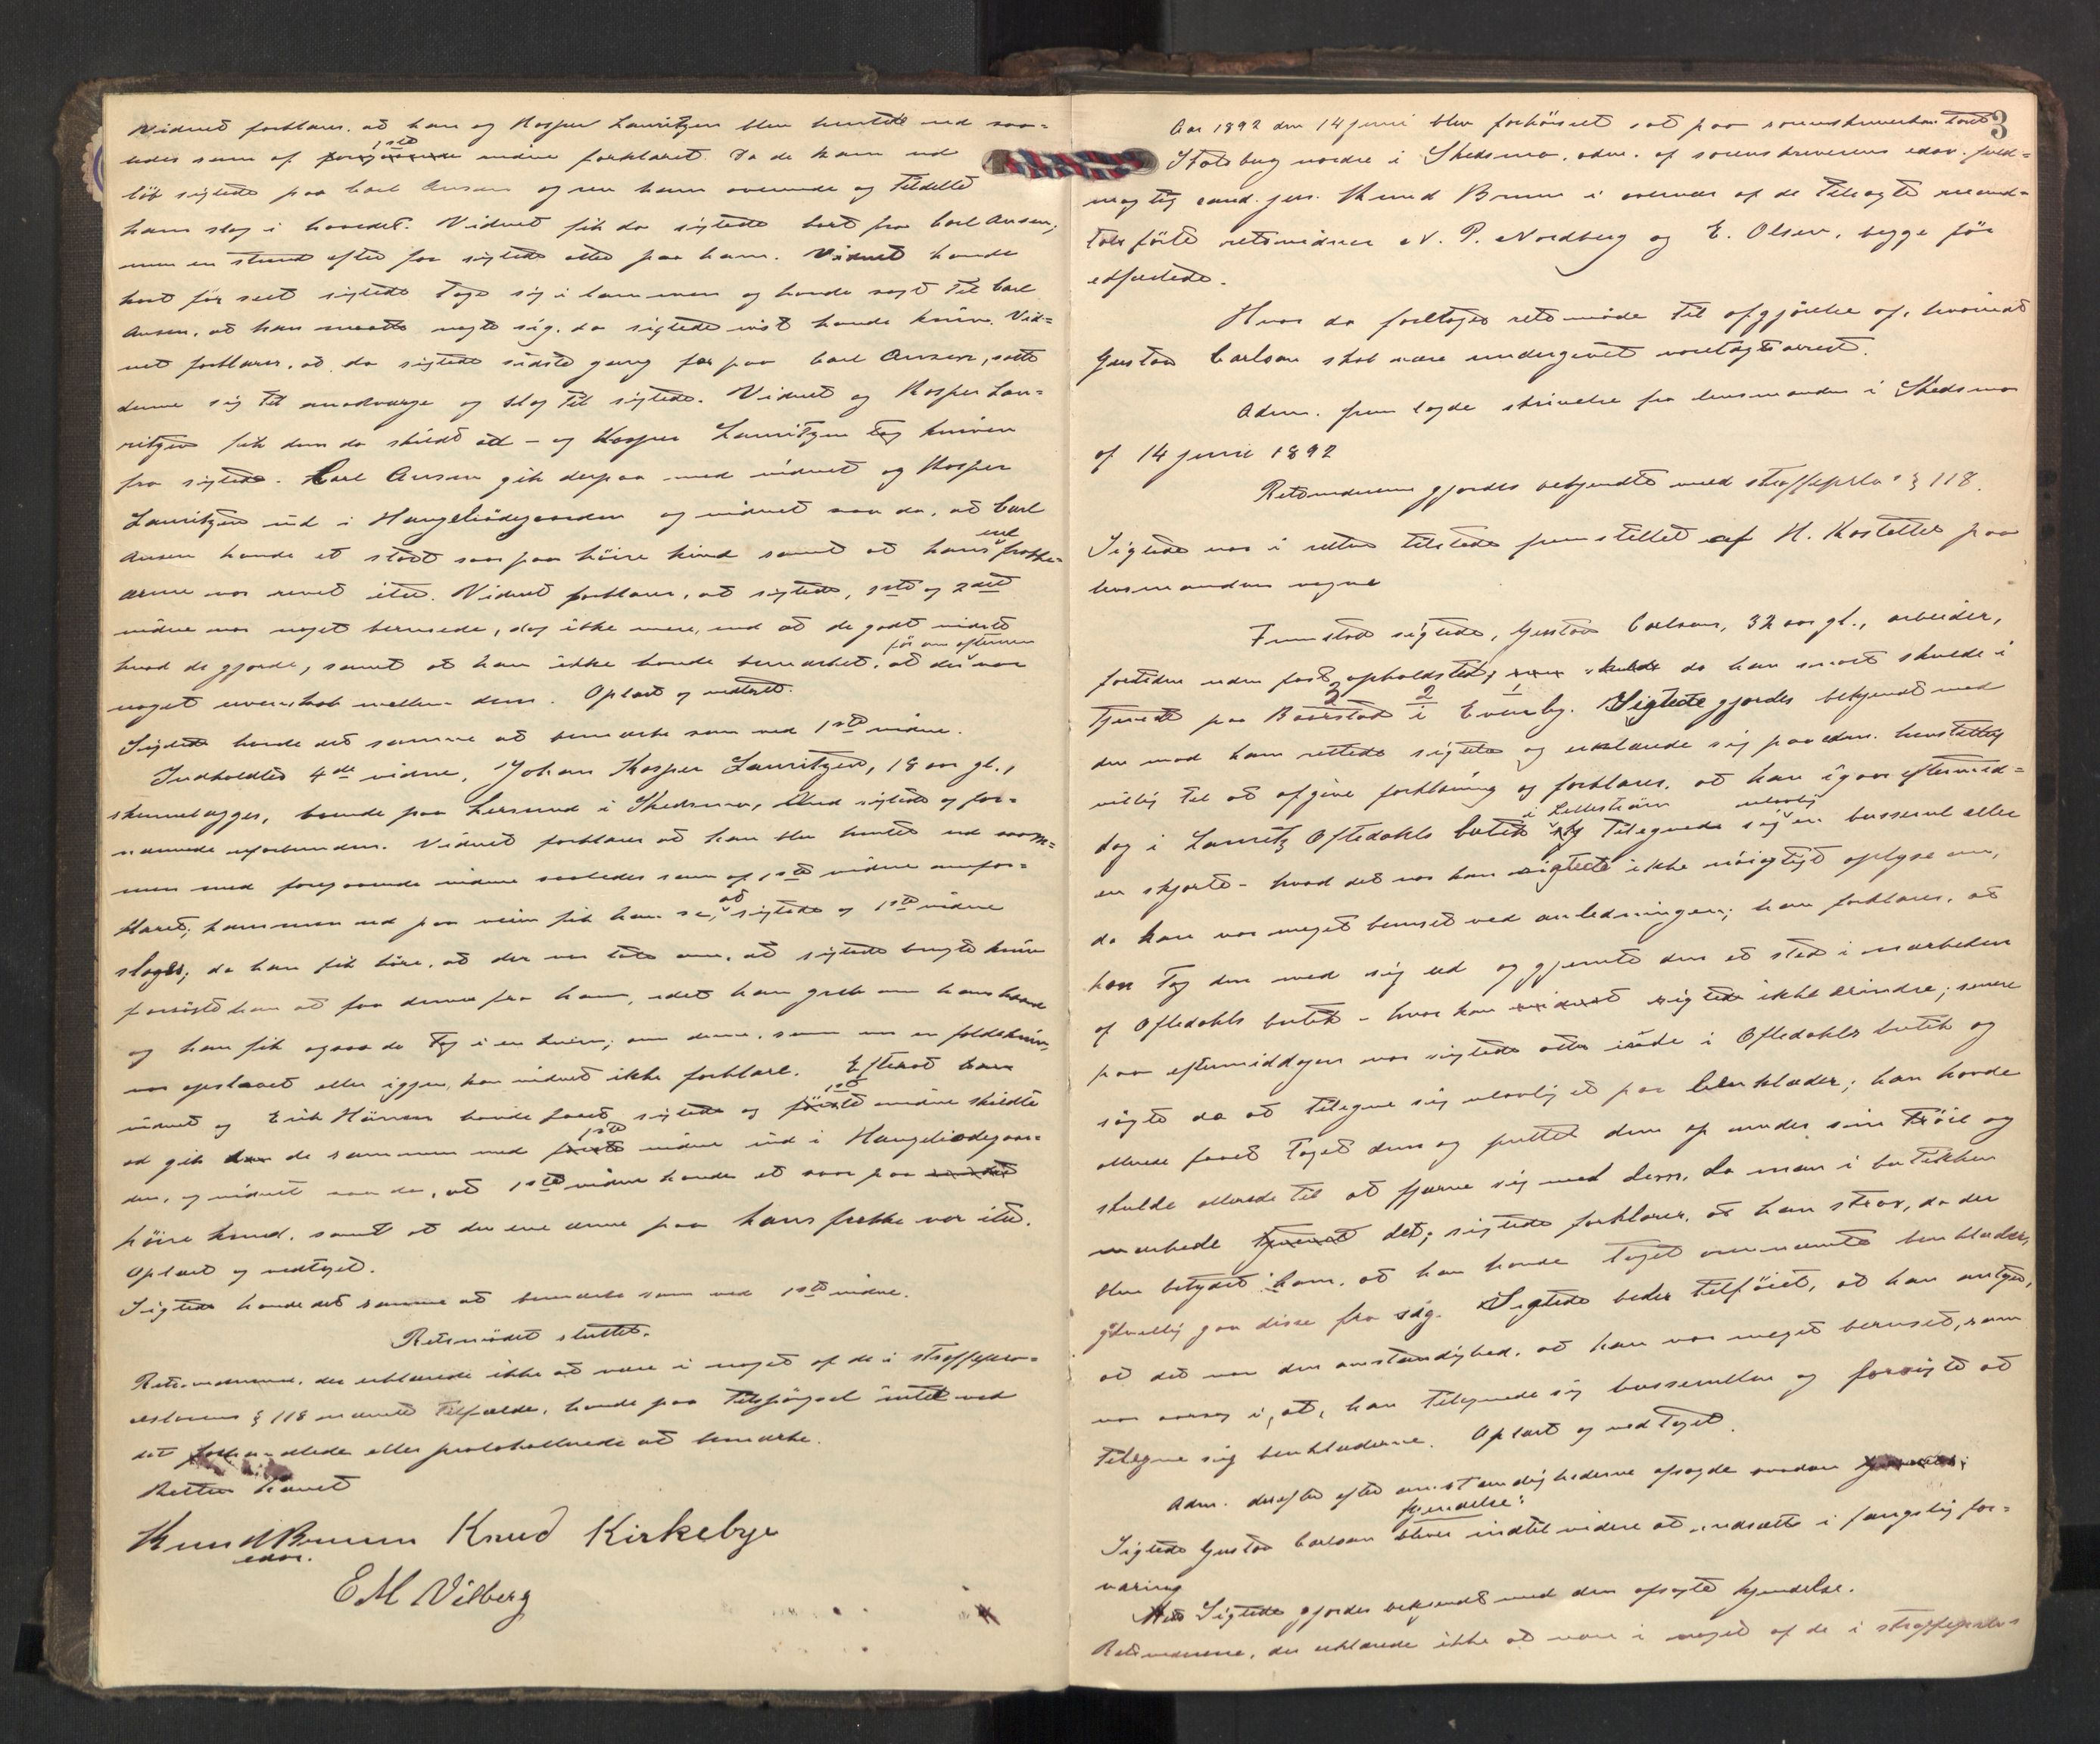 Vidnet forklarer, at han og Kasper Lauritzen blev hentede ud saa-
ledes som af foregaaende 1ste vidne forklaret. Da de kom ud
løb sigtede paa Carl Ansen og rev ham overende og tildelte
ham slag i hovedet. Vidnet fik da sigtede bort fra Carl Ansen,
men en stund efter for sigtede atter paa ham. Vidnet havde
kort før seet sigtede tage sig i lommen og havde sagt til Carl
Ansen, at han maatte vogte sig, da sigtede vist havde kniv. Vid-
net forklarer, at da sigtede sidste gang for paa Carl Ansen, satte
denne sig til modværge og slog til sigtede. Vidnet og Kasper Lau-
ritzen fik dem da skildt ad – og Kasper Lauritzen tog kniven
fra sigtede. Carl Ansen gik derpaa med vidnet og Kasper
Lauritzen ind i Haugeliødegaarden og vidnet saa da, at Carl
Ansen havde et stort saar paa høire kind samt at hans ene frakke-
ærme var revet itu. Vidnet forklarer, at sigtede, 1ste og 2det
vidne var noget berusede, dog ikke mere, end at de godt vidste
hvad de gjorde, samt at han ikke havde bemærket, at der før om aftenen var
noget uvenskab mellem dem. Oplæst og vedtaget.
Sigtede havde det samme at bemærke som ved 1ste vidne.
Indkaldtes 4de vidne, Johan Kasper Lauritzen, 18 aar gl.,
skinnelægger, boende paa Lersund i Skedsmo, med sigtede og for-
nærmede uforbunden. Vidnet forklarer at han blev hentet ud sam-
men med foregaaende vidne saaledes som af 1ste vidne anfor-
klaret; kommen ud paa veien fik han se, at sigtede og 1ste vidne
sloges; da han fik høre, at der var tale om, at sigtede brugte kniv
forsøgte han at faa denne fra ham, idet han greb om hans haand
og han fik ogsaa da tag i en kniv; om denne, som var en foldekniv,
var opslaaet eller iggjen, kan vidnet ikke forklare. Efterat han
vidnet og Erik Hansen havde faaet sigtede og første 1ste vidne skildte
ad gik de sammen med første 1ste vidne ind i Haugeliødegaar-
den, og vidnet saa da, at 1ste vidne havde et saar paa
høire kind, samt at det ene ærme paa hans frakke var itu.
Oplæst og vedtaget.
Sigtede havde det samme at bemærke som ved 1ste vidne.
Retsmødet sluttet.
Retsvidnerne, der erklærede ikke at være i noget af de i straffepro-
ceslovens § 118 nævnte tilfælde, havde paa tilspørgsel intet ved
det forhandlede eller protokollerede at bemærke.
Retten hævet
Knud Bruun Knud Kirkebye
edsv.
E M Vilberg
3
Aar 1892 den 14 juni blev forhørsret sat paa sorenskriverkontoret
Stalsberg nordre i Skedsmo, adm. af sorenskriverens edsv. fuld-
mægtig cand. jur. Knud Bruun i overvær af de tilsagte mand-
talsførte retsvidner N. P. Nordberg og E. Olsen, begge før
edfæstede.
Hvor da foretoges retsmøde til afgjørelse af, hvorvidt
Gustav Carlson skal være undergivet varetægtsarrest.
Adm. fremlagde skrivelse fra lensmanden i Skedsmo
af 14 juni 1892
Retsvidnerne gjordes bekjendte med straffeprlov's § 118.
Sigtede var i retten tilstede fremstillet af H. Kostettes paa
lensmandens vegne
Fremstod sigtede, Gustav Carlson, 32 aar gl., arbeider,
fortiden uden fast opholdsted, da han snart skulde i
tjeneste paa Baarstad i Enerby. Sigtede gjordes bekjendt med
den mod ham rettede sigtelse og erklærede sig paa edm. henstilling
villig til at afgive forklaring og forklarer, at han igaar eftermid-
dag i Lauritz Oftedahls butik i Lillestrøm tilegnede sig ulovlig en busserul eller
en skjorte – hvad det var kan sigtede ikke nøiagtigt oplyse om,
da han var meget beruset ved anledningen; han forklarer, at
han tog den med sig ud og gjemte den et sted i nærheden
af Oftedahls butik – hvor kan vidnet sigtede ikke erindre; senere
paa eftermiddagen var sigtede atter inde i Oftedahls butik og
søgte da at tilegne sig ulovlig et par benklæder; han havde
allerede faaet taget dem og puttet dem op under sin trøie og
skulde allerede til at fjerne sig med dem, da man i butikken
mærkede det; sigtede forklarer, at han strax, da det
blev betydet ham, at han havde taget ovennævnte benklæder,
godvillig gav disse fra sig. Sigtede beder tilføiet, at han antager,
at det var den omstændighed, at han var meget beruset, som
var aarsag i, at, han tilegnede sig busserullen og forsøgte at
tilegne sig benklæderne. Oplæst og vedtaget.
Adm. derefter efter omstændighederne afsagde saadan
kjendelse:
Sigtede Gustav Carlson bliver indtil videre at indsætte i fængslig for-
varing
Sigtede gjordes bekjendt med den afsagte kjendelse.
Retsvidnerne, der erklærede ikke at være i noget af de i straffeprlov's